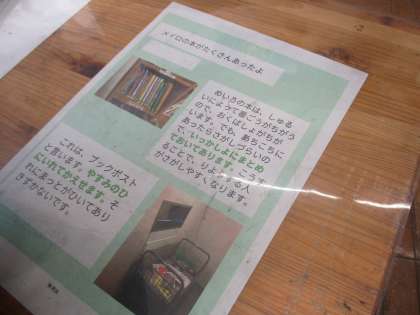 メイロの本がたくさんあったよ
めいろの本は、しゅる
いによって番ごうがちがう
ので、おくばしょがちが
います。でも、あちこちに
あったらさがしづらいの
で、いっかしょにまとめ
ておいてあります。こうす
ることで、りようする人
がさがしやすくなります。
これは、ブックポスト
と言います。やすみのひ
にいれてかえせます。そ
れにまっとがひいてあり
きずかないです。